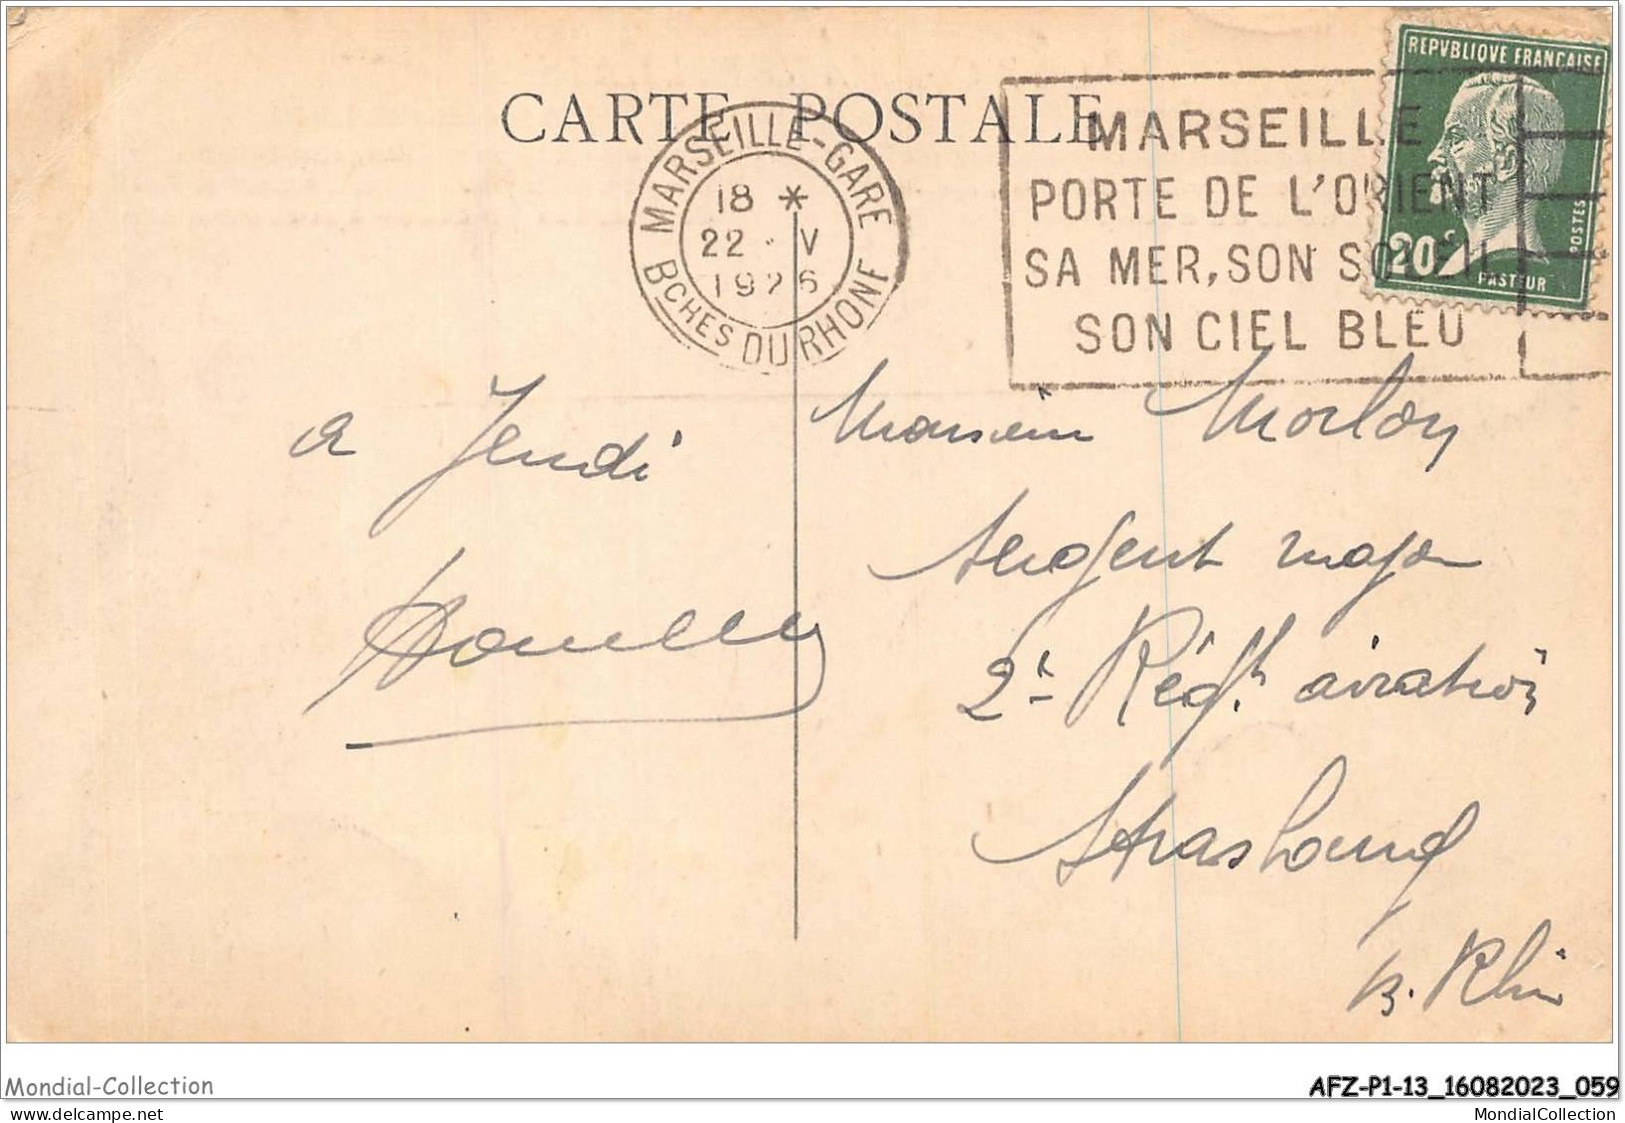 CARTE POSTALE
MARSEILLE-GARE
18 *
22 · V
1926
BCHES DU RHONE
MARSEILLE
PORTE DE L'ORIENT
SA MER, SON SOLEIL
SON CIEL BLEU
REPVBLIQVE FRANÇAISE
POSTES
20c
PASTEUR
a Jeudi
Monsieur Morlon
Sergent major
2e Régt. aviation
Strasbourg
B. Rhin
Mondial-Collection
AFZ-P1-13_16082023_059
www.delcampe.net
MondialCollection